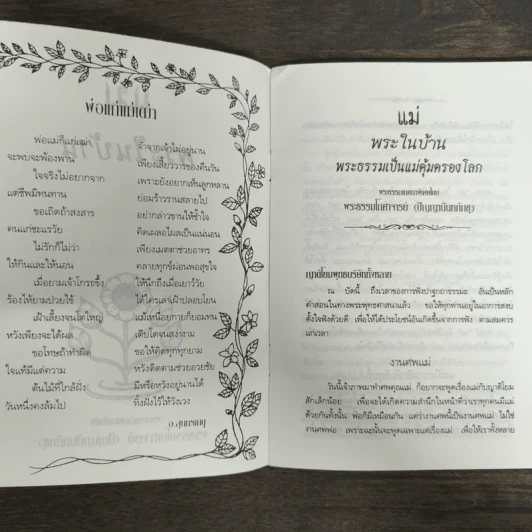 พ่อแก่แม่เฒ่า
พ่อแม่ก็แก่เฒ่า จำจากเจ้าไม่อยู่นาน
จะพบจะพ้องพาน เพียงเสี้ยววารของคืนวัน
ใจจริงไม่อยากจาก เพราะยังอยากเห็นลูกหลาน
แต่ชีพมิทนทาน ย่อมร้าวรานสลายไป
ขอเถิดถ้าสงสาร อย่ากล่าวขานให้ช้ำใจ
คนแก่ชะแรวัย คิดเผลอไผลเป็นแน่นอน
ไม่รักก็ไม่ว่า เพียงเมตตาช่วยอาทร
ให้กินและให้นอน คลายทุกข์ผ่อนพอสุขใจ
เมื่อยามเจ้าโกรธขึ้ง ให้นึกถึงเมื่อเยาว์วัย
ร้องไห้ยามป่วยไข้ ได้ใครเล่าเฝ้าปลอบโยน
เฝ้าเลี้ยงจนโตใหญ่ แม้เหนื่อยกายก็ยอมทน
หวังเพียงจะได้ผล เติบโตจนสง่างาม
ขอโทษถ้าทำผิด ขอให้คิดทุกทุกยาม
ใจแท้มีแต่ความ หวังติดตามช่วยอวยชัย
ต้นไม้ที่ใกล้ฝั่ง มีหรือหวังอยู่นานได้
วันหนึ่งคงล้มไป ทิ้งฝั่งไว้ให้วังเวง
อ.สุนทรเกตุ
แม่
พระในบ้าน
พระธรรมเป็นแม่คุ้มครองโลก
พระธรรมโกศาจารย์ (ปัญญานันทภิกขุ)
ญาติโยมพุทธบริษัททั้งหลาย
ณ บัดนี้ ถึงเวลาของการฟังปาฐกถาธรรมะ อันเป็นหลัก
คำสอนในทางพระพุทธศาสนาแล้ว ขอให้ทุกท่านอยู่ในอาการสงบ
ตั้งใจฟังด้วยดี เพื่อให้ได้ประโยชน์อันเกิดขึ้นจากการฟัง ตามสมควร
แก่เวลา
งานศพแม่
วันนี้เจ้าภาพมาทำศพคุณแม่ ก็อยากจะพูดเรื่องแม่กับญาติโยม
สักเล็กน้อย เพื่อจะได้เกิดความสำนึกในหน้าที่ว่าเราทุกคนมีแม่
ด้วยกันทั้งนั้น พ่อก็มีเหมือนกัน แต่ว่างานศพนี้เป็นงานศพแม่ ไม่ใช่
งานศพพ่อ เพราะฉะนั้นจะพูดเฉพาะแต่เรื่องแม่ เพื่อให้เราทั้งหลาย